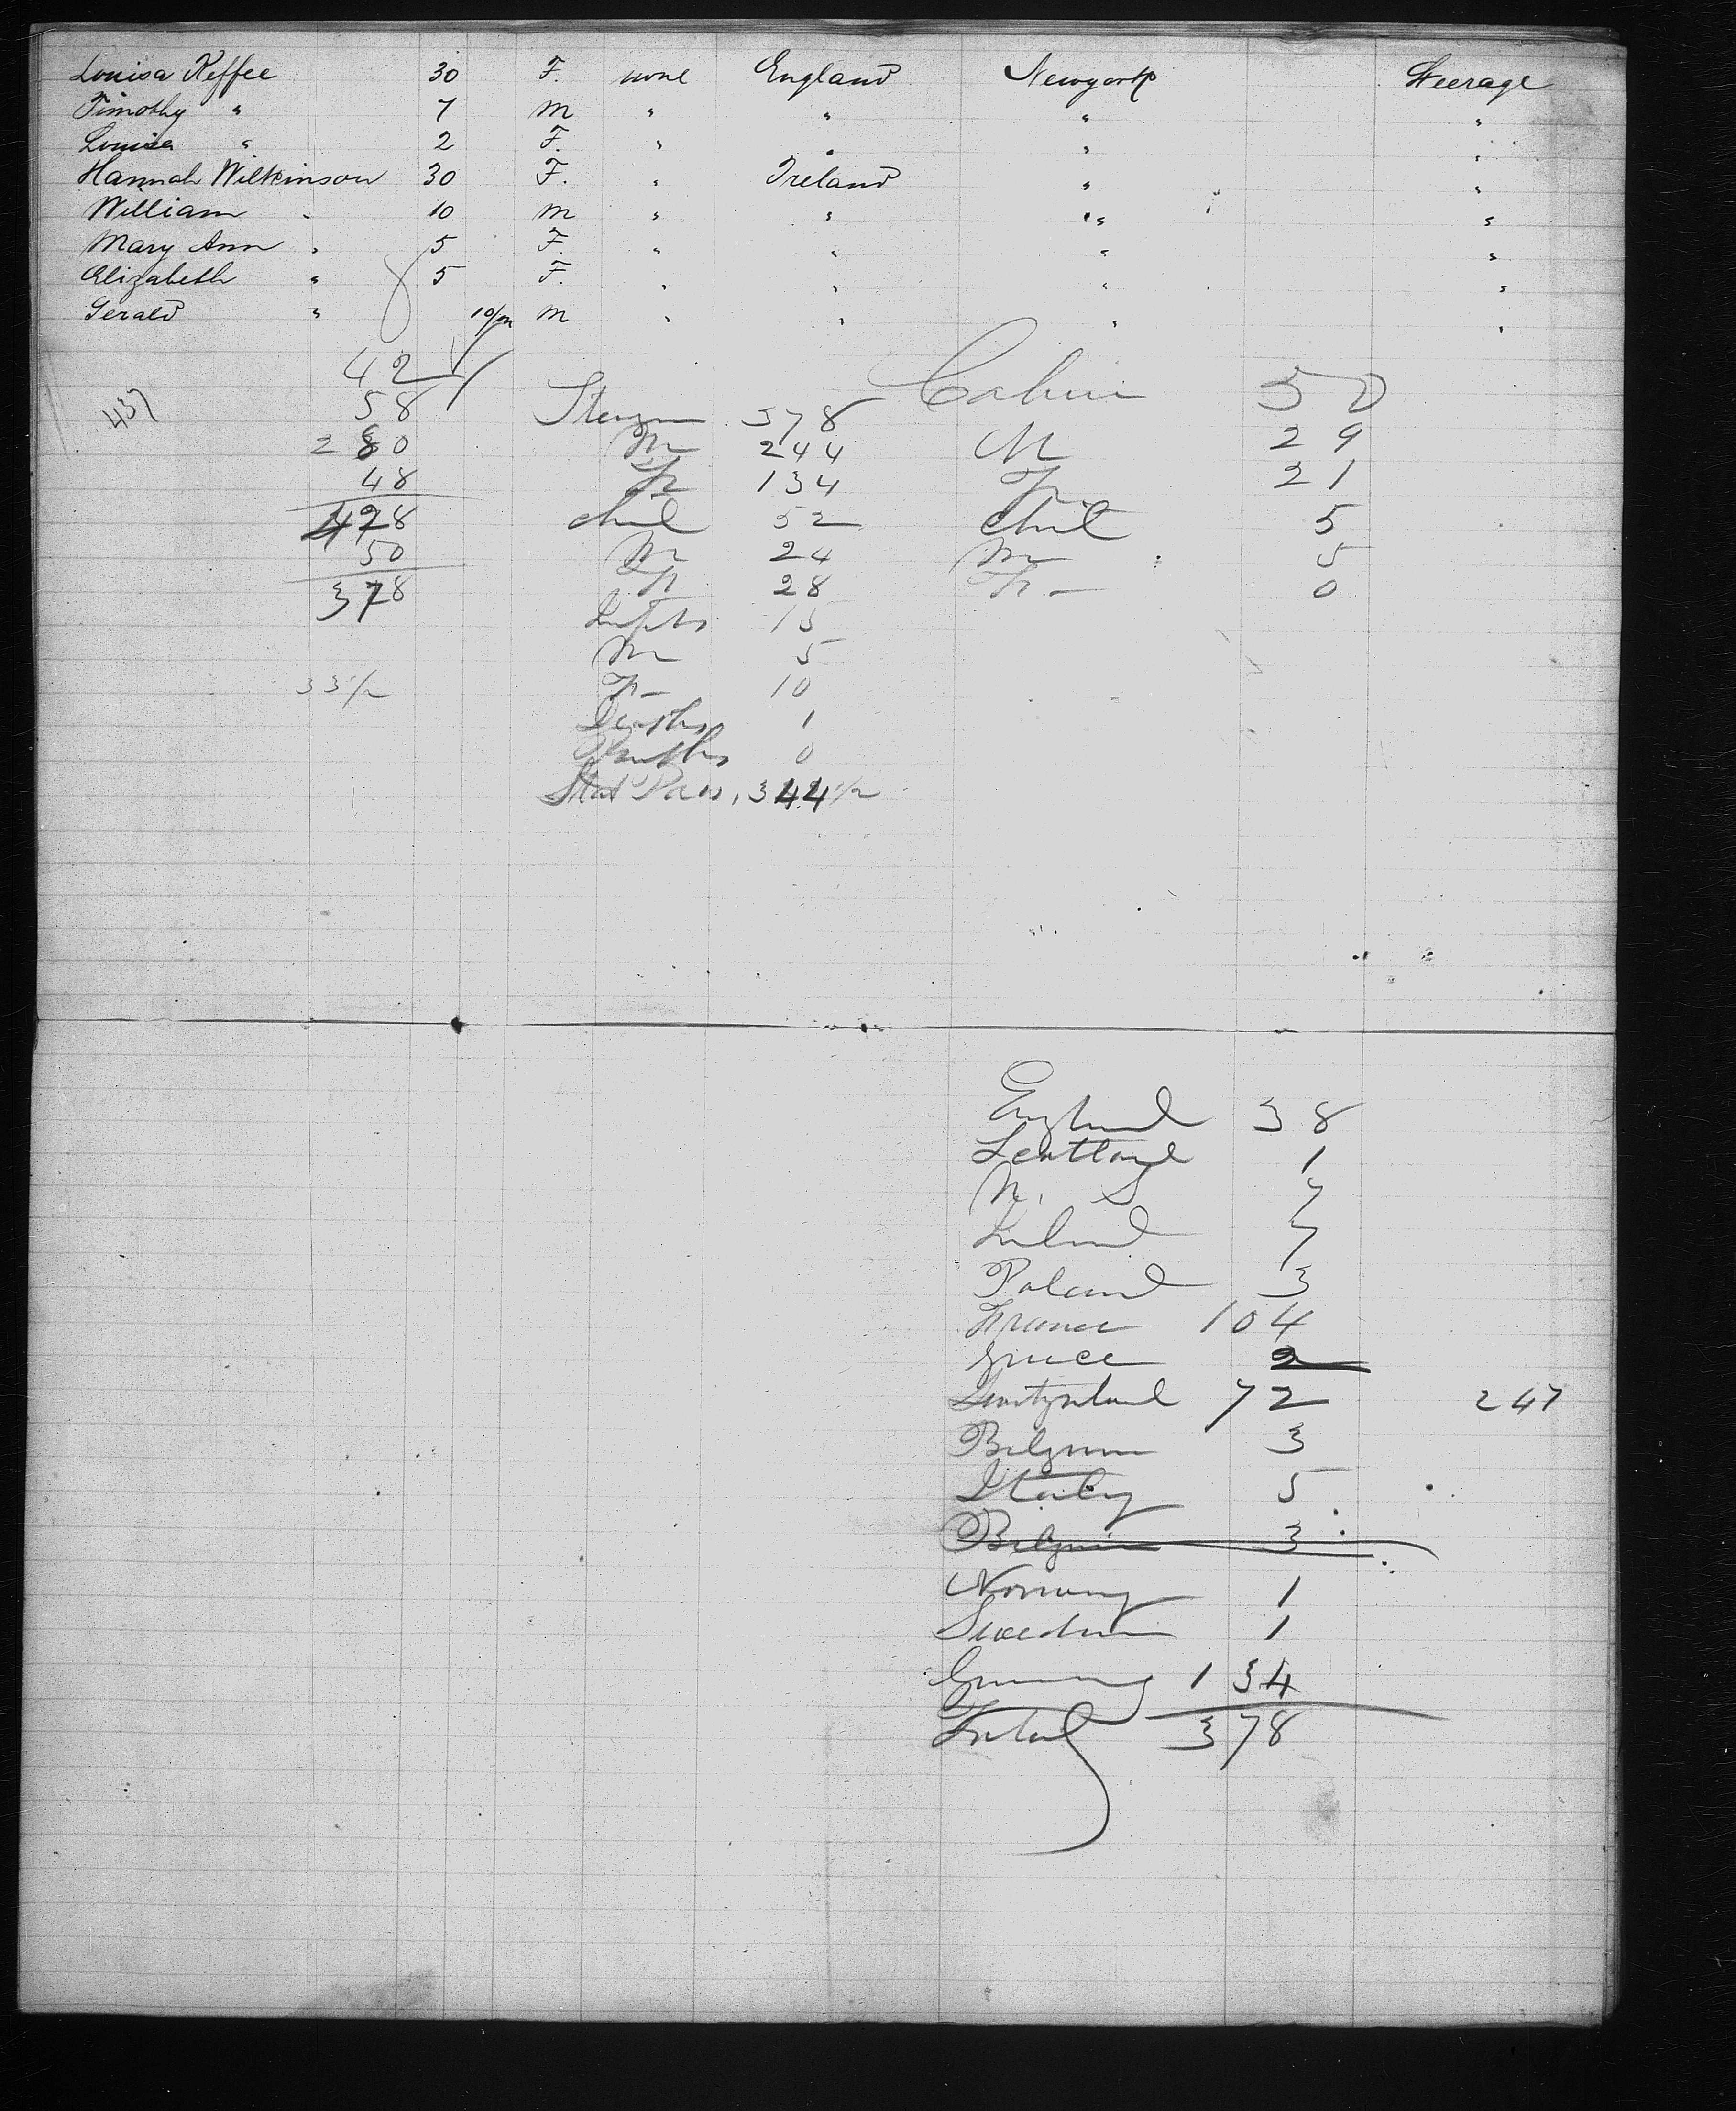 Louisa Keffee 30 F. none England Newyork Steerage
Timothy " 7 M " " " "
Louisa " 2 F. " " " "
Hannah Wilkinson 30 F. " Ireland " "
William " 10 M " " " "
Mary Ann " 5 F. " " " "
Elizabeth " 5 F. " " " "
Gerald " 10/m M " " " "
42
437 58
280
48
428
50
378
33 1/2
Steerge 378
M 244
F 134
chil 52
M 24
F 28
Infts 15
M 5
F - 10
Deaths 1
Births 0
Stat Pass, 344 1/2
Cabin 50
M 29
F. 21
Chil 5
M 5
F. - 0
England 38
Scottland 1
N. S 7
Ireland 7
Poland 3
France 104
Greece 2
Switzerland 72 247
Belgium 3
Italy 5
Belgium 3
Norway 1
Sweden 1
Germany 134
Total 378